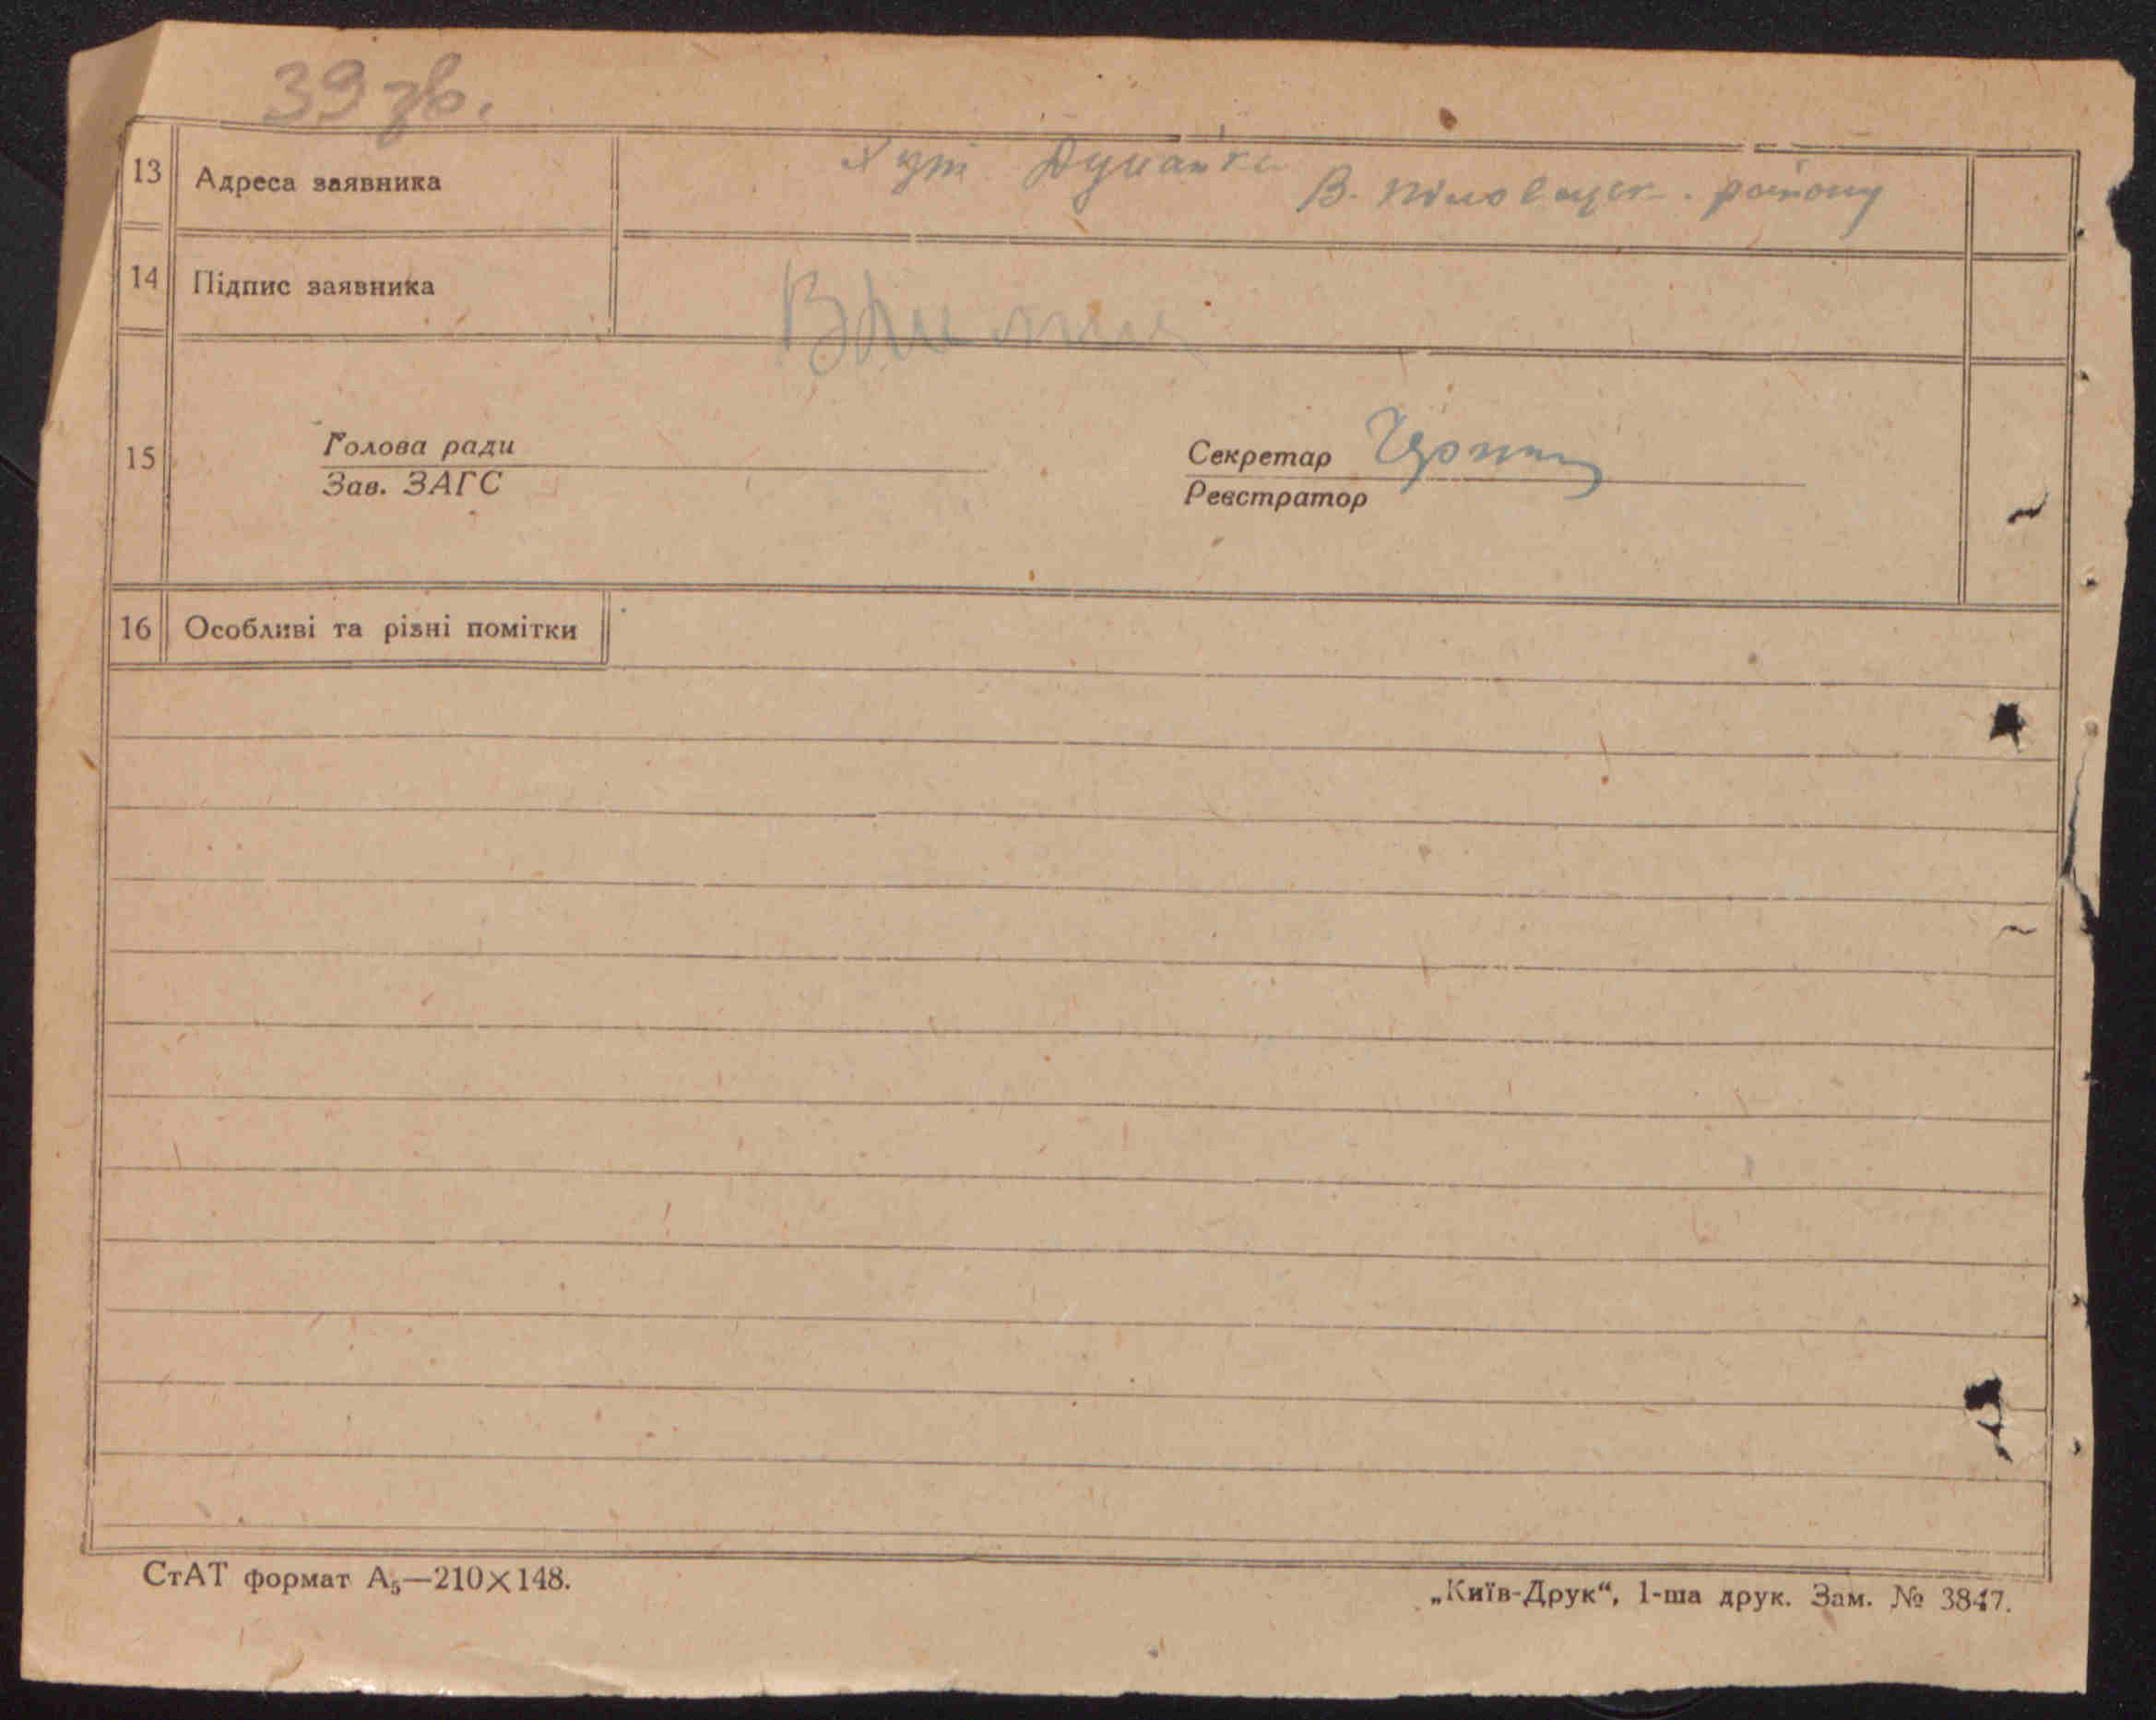 39 зв.
13 Адреса заявника Хут Дунайка В. району
14 Підпис заявника
15 Голова ради Секретар
Зав. ЗАГС Реєстратор
16 Особливі та різні помітки
СтАТ формат А₅—210×148. „Київ-Друк“, 1-ша друк. Зам. № 3847.